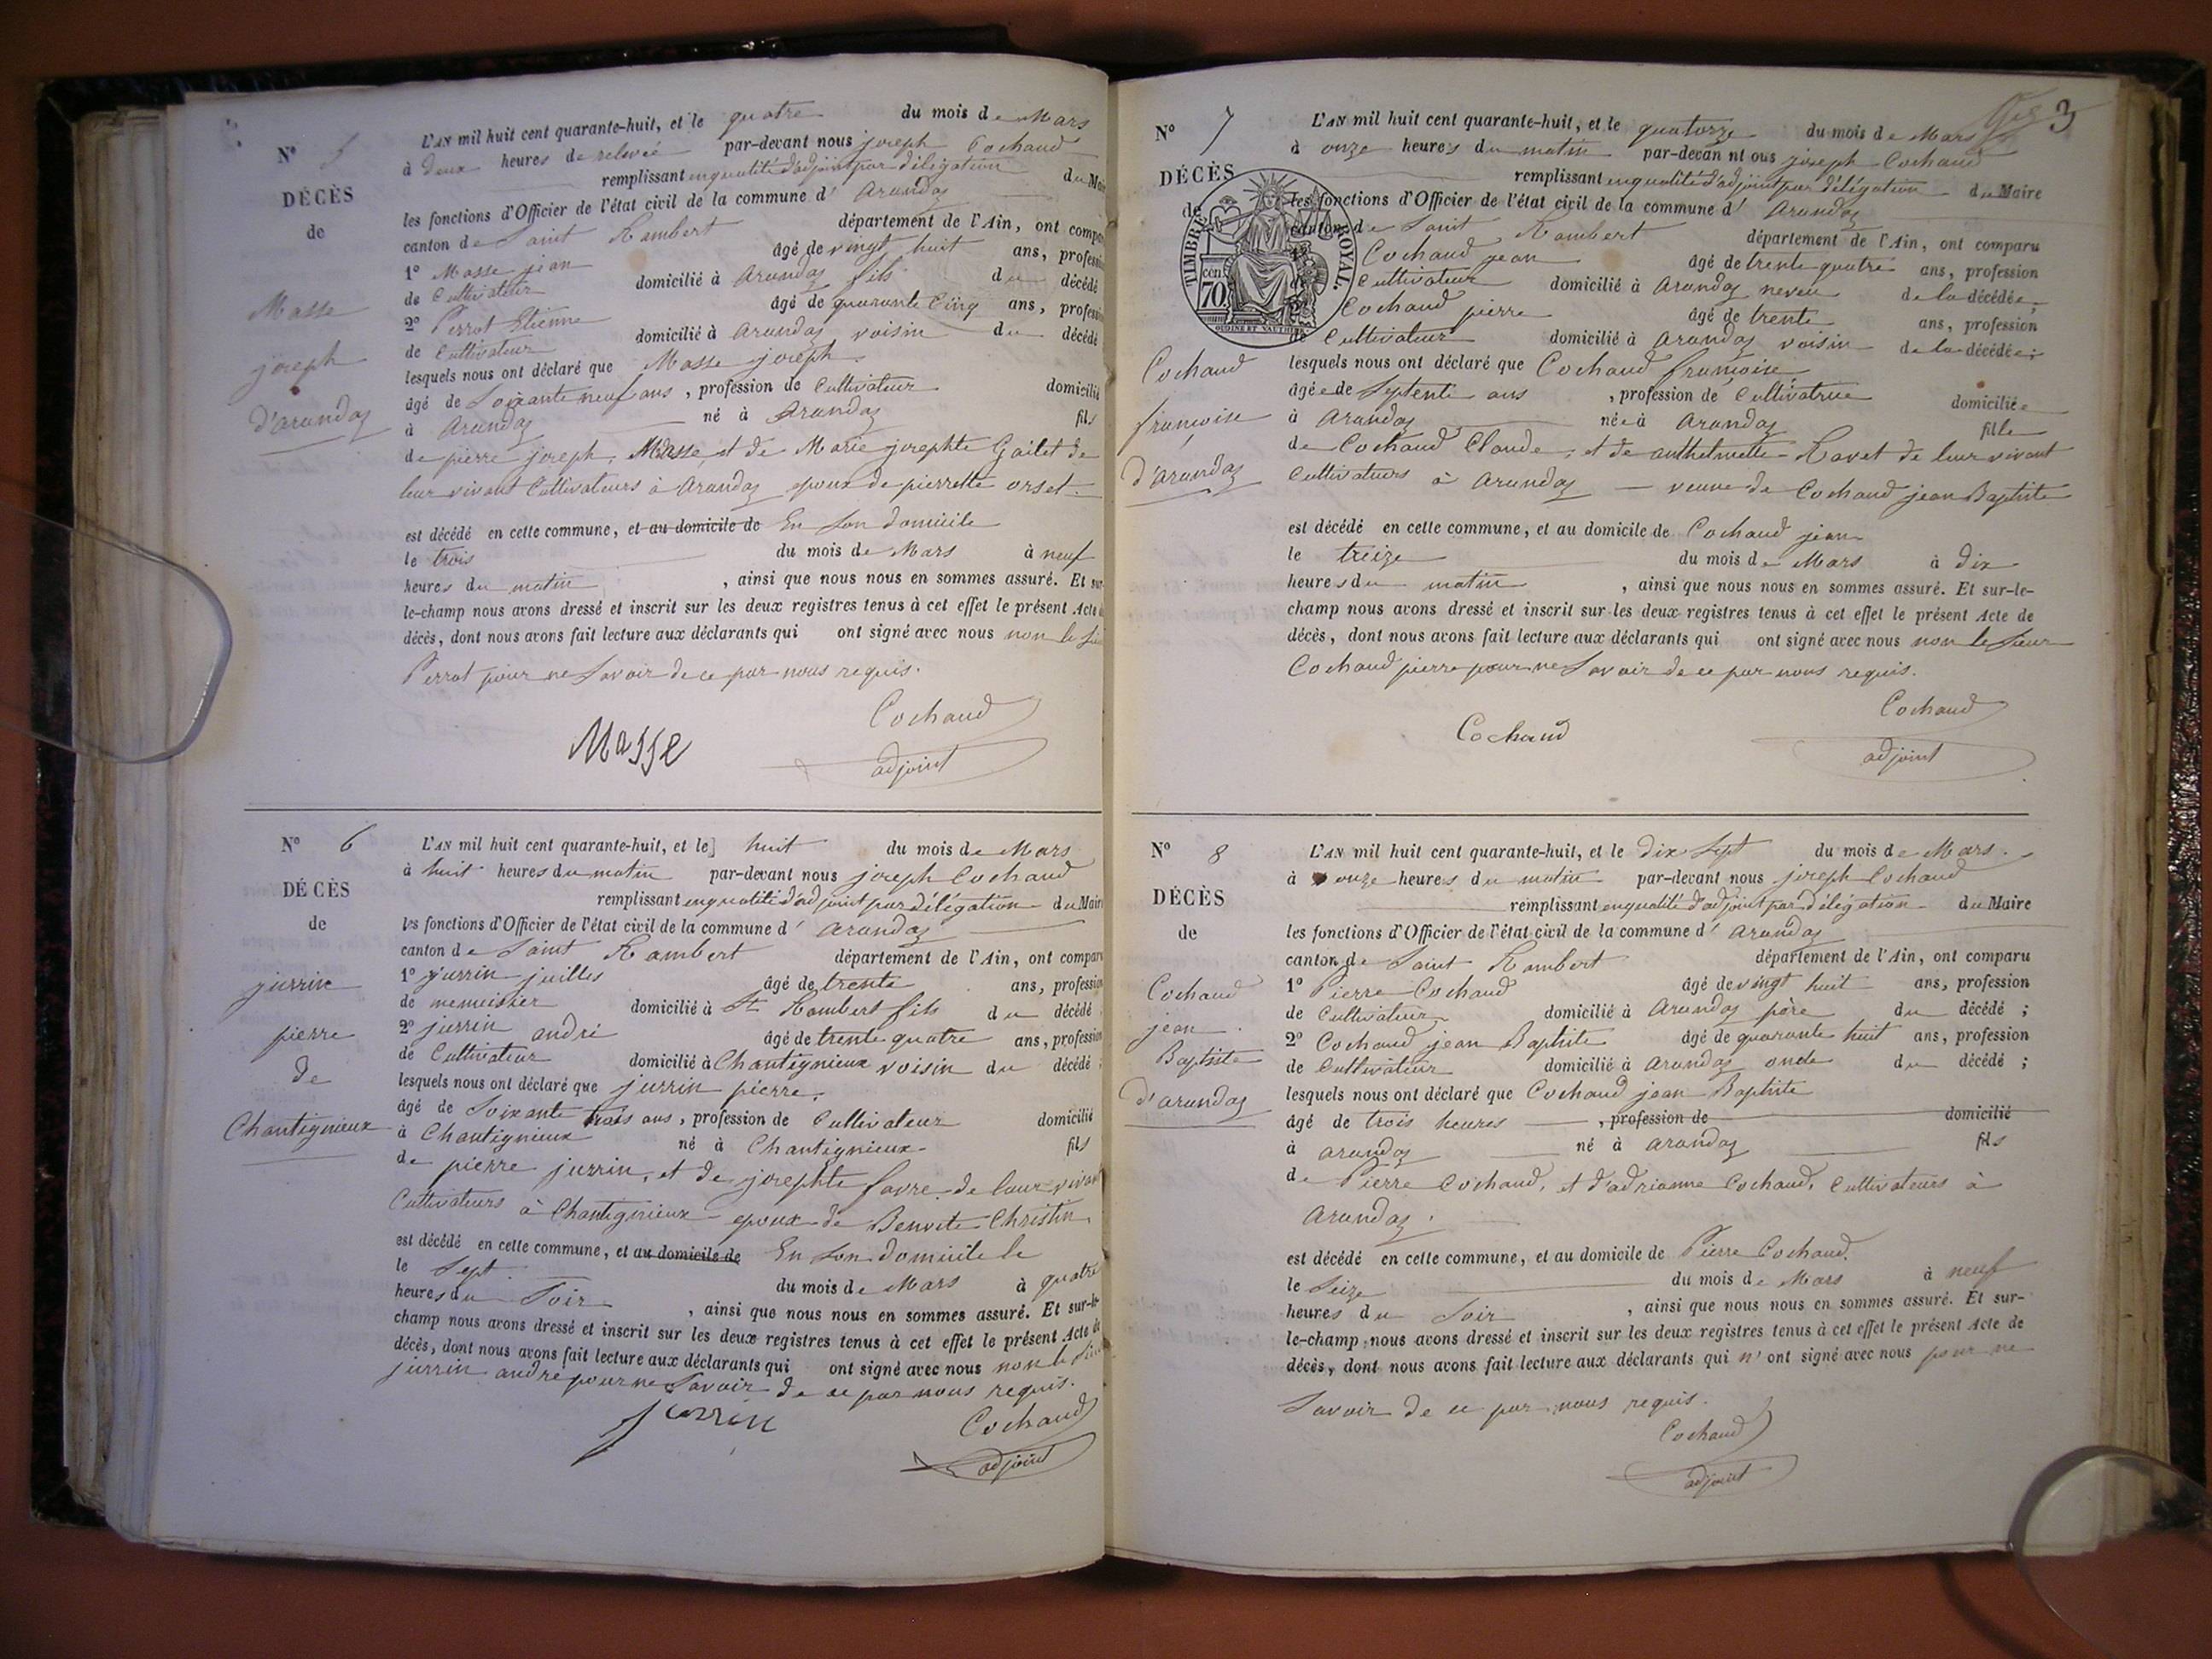 N° 5
DÉCÈS
de
Masse
joseph
d'arandaz
L'AN mil huit cent quarante-huit, et le quatre du mois de Mars
à deux heures de relevée par-devant nous joseph Cochaud
remplissant en qualité d'adjoint par délégation du Mai
les fonctions d'Officier de l'état civil de la commune d' Arandaz
canton de Saint Rambert département de l'Ain, ont compa
1° Masse jean âgé de vingt huit ans, profess
de Cultivateur domicilié à Arandaz fils du décédé
2° Perrot Etienne âgé de quarante Cinq ans, profess
de Cultivateur domicilié à Arandaz voisin du décédé
lesquels nous ont déclaré que Masse joseph
âgé de Soixante neuf ans, profession de Cultivateur domicilié
à Arandaz né à Arandaz fils
de pierre joseph Masse, et de Marie josephte Gailet de
leur vivant Cultivateurs à Arandaz epoux de pierrette orset.
est décédé en cette commune, et au domicile de En Son domicile
le trois du mois de Mars à neuf
heures du matin, ainsi que nous nous en sommes assuré. Et sur
le-champ nous avons dressé et inscrit sur les deux registres tenus à cet effet le présent Acte d
décès, dont nous avons fait lecture aux déclarants qui ont signé avec nous non le Sieu
Perrot pour ne Savoir de ce par nous requis.
Cochaud
Masse
adjoint
N° 6
DÉCÈS
de
jurrin
pierre
de
Chantignieux
L'AN mil huit cent quarante-huit, et le huit du mois de Mars
à huit heures du matin par-devant nous joseph Cochaud
remplissant en qualité d'adjoint par délégation du Mair
les fonctions d'Officier de l'état civil de la commune d' Arandaz
canton de Saint Rambert département de l'Ain, ont comparu
1° jurrin juilles âgé de trente ans, profession
de menuisier domicilié à St Rambert fils du décédé
2° jurrin andré âgé de trente quatre ans, profession
de Cultivateur domicilié à Chantignieux voisin du décédé ;
lesquels nous ont déclaré que jurrin pierre
âgé de Soixante trois ans, profession de Cultivateur domicilié
à Chantignieux né à Chantignieux fils
de pierre jurrin, et de josephte favre de leur vivant
Cultivateurs à Chantignieux epoux de Benoite Christin
est décédé en cette commune, et au domicile de En Son domicile le
le Sept du mois de Mars à quatre
heures du Soir, ainsi que nous nous en sommes assuré. Et sur-le-
champ nous avons dressé et inscrit sur les deux registres tenus à cet effet le présent Acte de
décès, dont nous avons fait lecture aux déclarants qui ont signé avec nous non le Sieu
jurrin andre pour ne Savoir de ce par nous requis.
jurrin Cochaud
adjoint
3
N° 7
DÉCÈS
de
TIMBRE ROYAL
70 cen
OUDINÉ ET VAUTHIER
Cochaud
françoise
d'arandaz
L'AN mil huit cent quarante-huit, et le quatorze du mois de Mars
à onze heures du matin par-devan nt ous joseph Cochaud
remplissant en qualité d'adjoint par délégation du Maire
les fonctions d'Officier de l'état civil de la commune d' Arandaz
canton de Saint Rambert département de l'Ain, ont comparu
Cochaud jean âgé de trente quatre ans, profession
Cultivateur domicilié à Arandaz neveu de la décédée ;
Cochaud pierre âgé de trente ans, profession
de Cultivateur domicilié à Arandaz voisin de la décédée ;
lesquels nous ont déclaré que Cochaud françoise
âgée de Septente ans, profession de Cultivatrice domiciliée
à Arandaz née à Arandaz fille
de Cochaud Claude, et de anthelmette Ravet de leur vivant
Cultivateurs à Arandaz — veuve de Cochaud jean Baptiste
est décédé en cette commune, et au domicile de Cochaud jean
le treize du mois de Mars à dix
heures du matin, ainsi que nous nous en sommes assuré. Et sur-le-
champ nous avons dressé et inscrit sur les deux registres tenus à cet effet le présent Acte de
décès, dont nous avons fait lecture aux déclarants qui ont signé avec nous non le Sieur
Cochaud pierre pour ne Savoir de ce par nous requis.
Cochaud
Cochaud
adjoint
N° 8
DÉCÈS
de
Cochaud
jean
Baptiste
d'arandaz
L'AN mil huit cent quarante-huit, et le dix Sept du mois de Mars
à onze heures du matin par-devant nous joseph Cochaud
remplissant en qualité d'adjoint par délégation du Maire
les fonctions d'Officier de l'état civil de la commune d' Arandaz
canton de Saint Rambert département de l'Ain, ont comparu
1° Pierre Cochaud âgé de vingt huit ans, profession
de Cultivateur domicilié à Arandaz père du décédé ;
2° Cochaud jean Baptiste âgé de quarante huit ans, profession
de Cultivateur domicilié à Arandaz oncle du décédé ;
lesquels nous ont déclaré que Cochaud jean Baptiste
âgé de trois heures, profession de domicilié
à Arandaz né à Arandaz fils
de Pierre Cochaud, et d'adrianne Cochaud, Cultivateurs à
Arandaz.
est décédé en cette commune, et au domicile de Pierre Cochaud.
le Seize du mois de Mars à neuf
heures du Soir, ainsi que nous nous en sommes assuré. Et sur-
le-champ nous avons dressé et inscrit sur les deux registres tenus à cet effet le présent Acte de
décès, dont nous avons fait lecture aux déclarants qui n'ont signé avec nous pour ne
Savoir de ce par nous requis.
Cochaud
adjoint